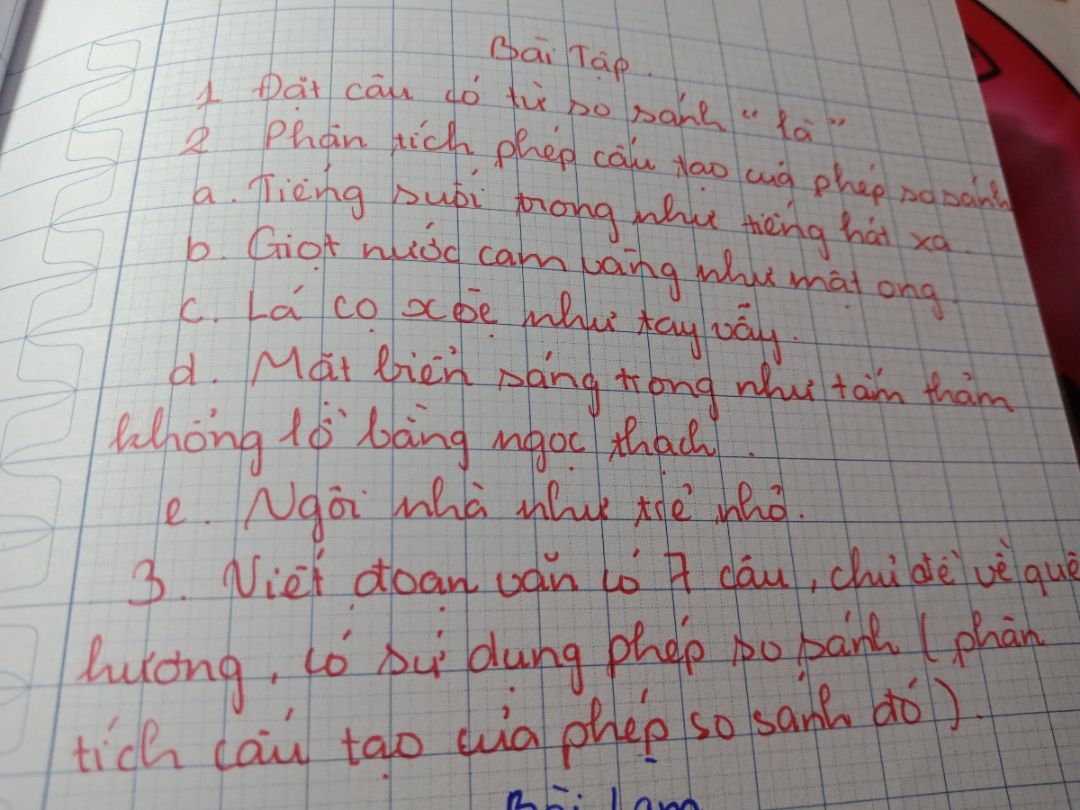 Bài Tập.
1 Đặt câu có từ so sánh "là"
2 Phân tích phép cấu tạo của phép so sánh
a. Tiếng suối trong như tiếng hát xa.
b. Giọt nước cam vàng như mật ong.
c. Lá cọ xòe như tay vẫy.
d. Mặt biển sáng trong như tấm thảm
khổng lồ bằng ngọc thạch.
e. Ngôi nhà như trẻ nhỏ.
3. Viết đoạn văn có 7 câu, chủ đề về quê
hương, có sử dụng phép so sánh (phân
tích cấu tạo của phép so sánh đó).
Bài làm